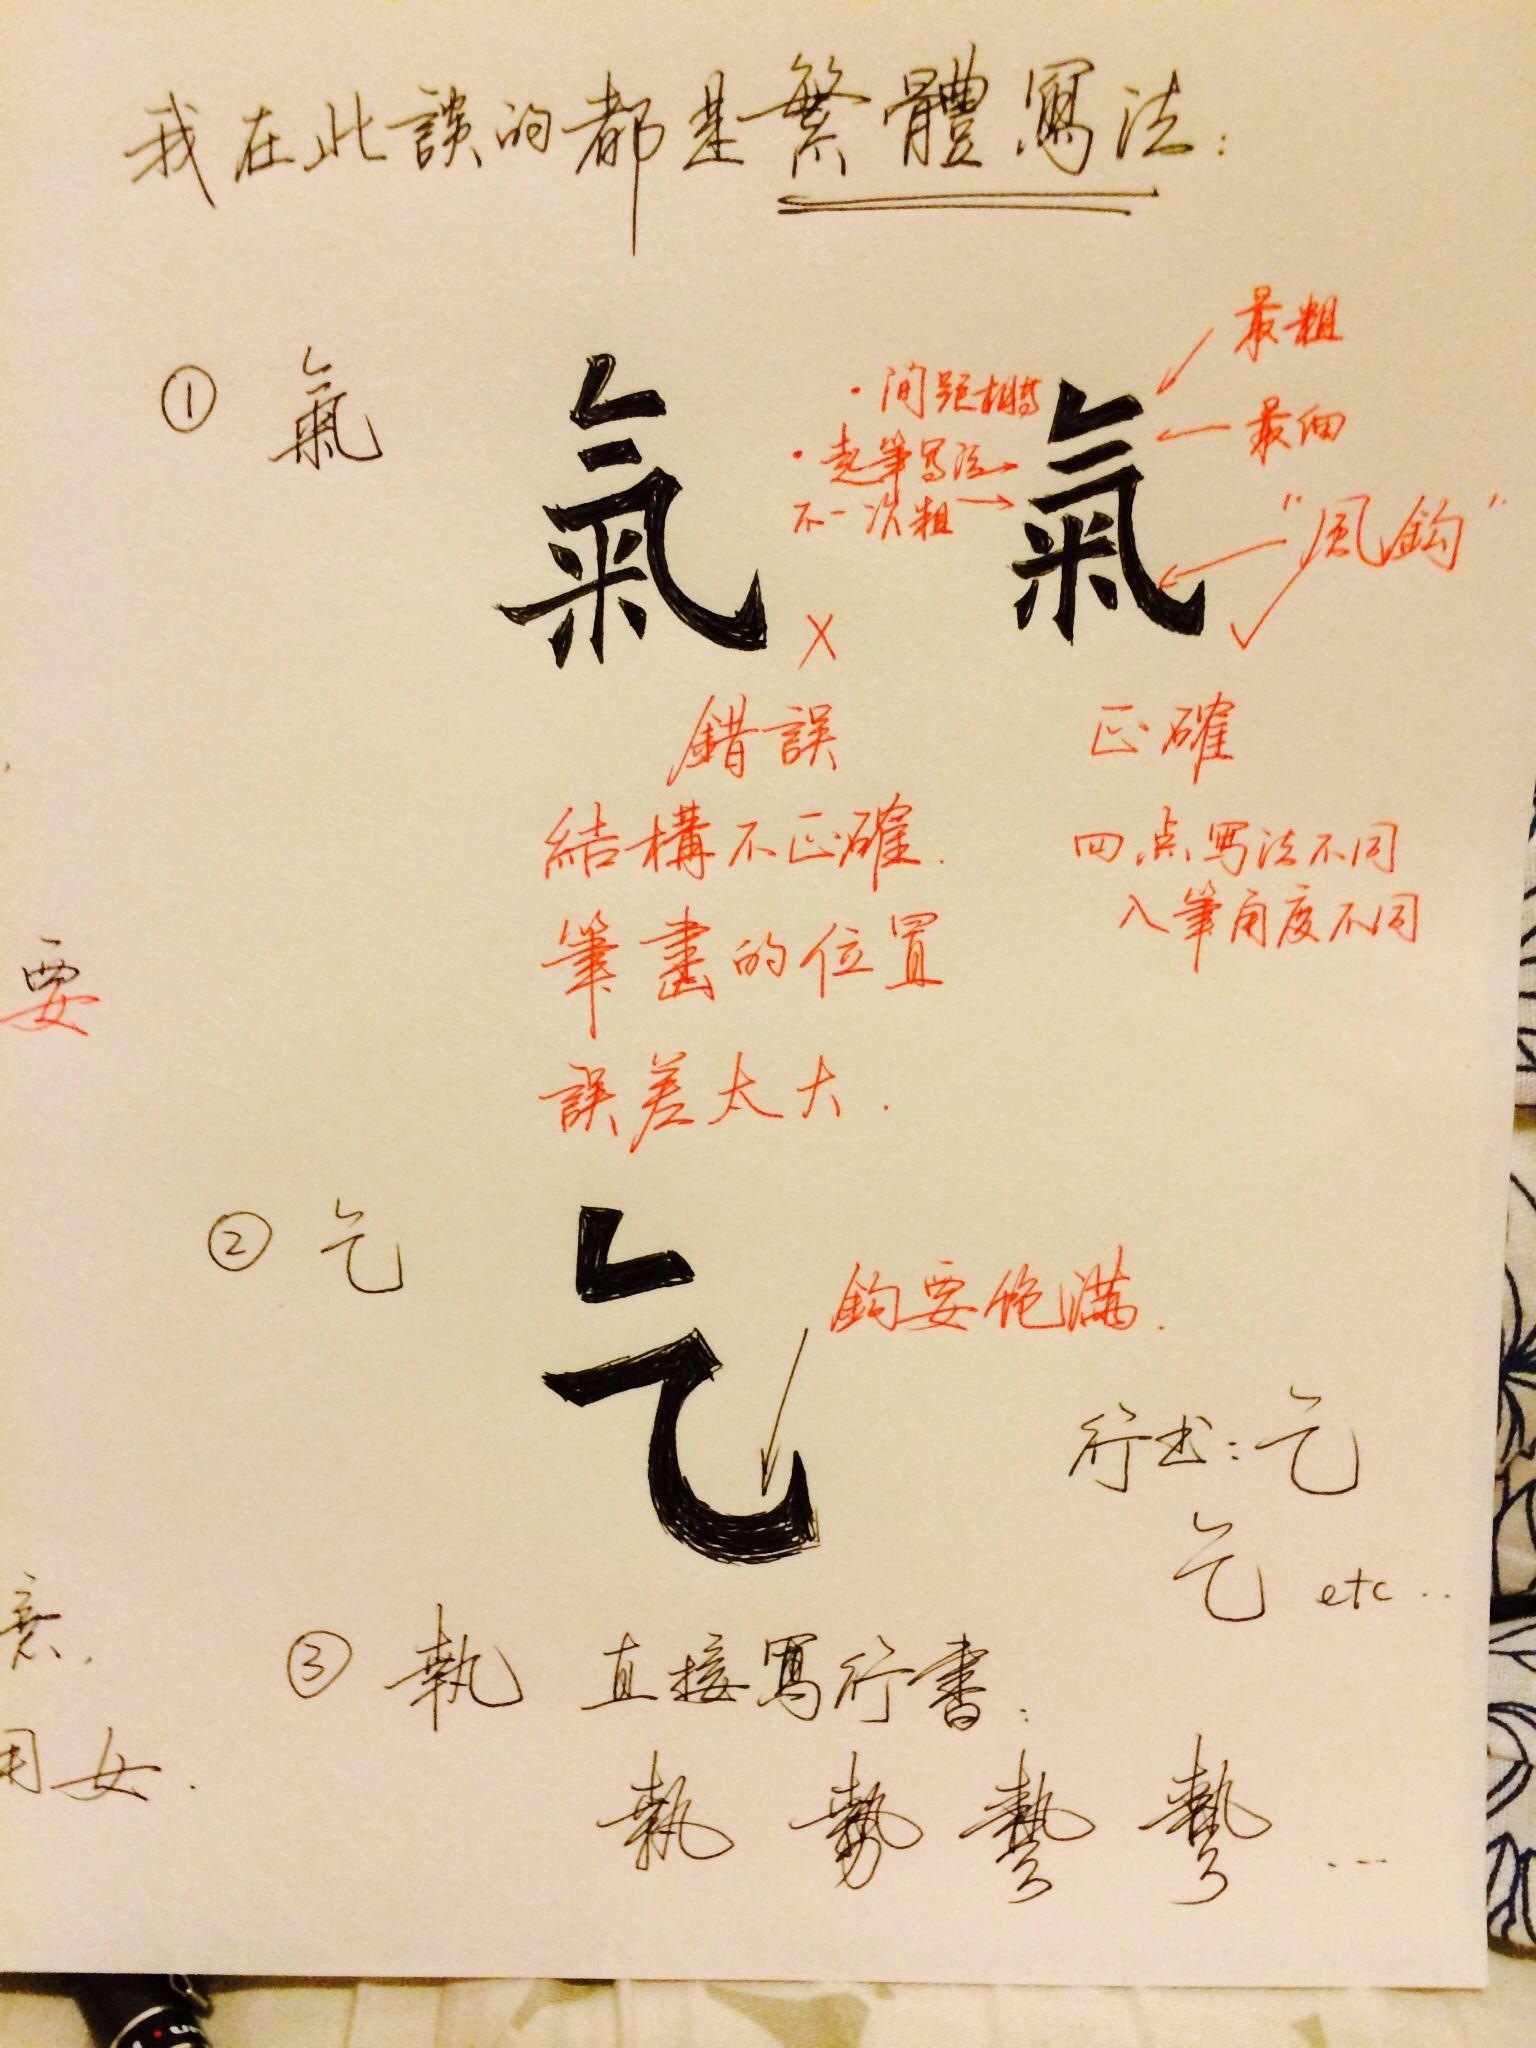 我在此談的都是繁體寫法：
① 氣 氣 氣
最粗
・间距相等
最细
・起筆写法
不一 次粗
"风鈎"
X ✓
錯誤
正確
結構不正確.
四点写法不同
筆畫的位置
入筆角度不同
要
誤差太大.
② 乞 乞
鈎要飽满.
行书：乞
乞 etc..
意.
③ 執 直接寫行書：
用女.
執 勢 摯 摯 ...